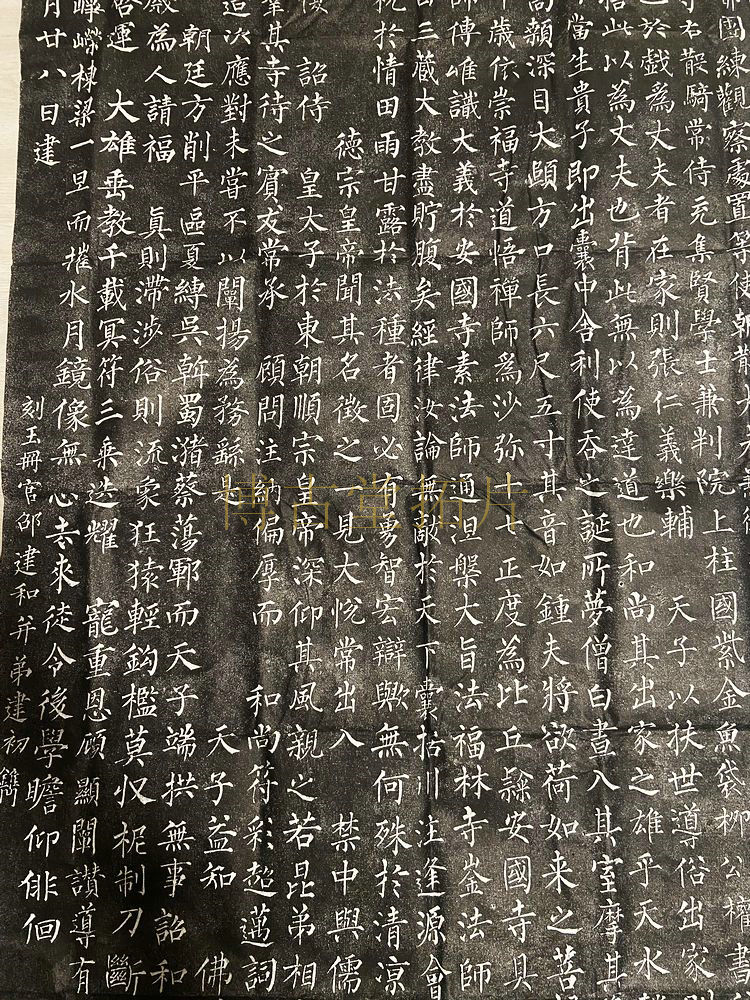 團練觀察處置等使朝散大夫
守右散騎常侍充集賢學士兼判院上柱國紫金魚袋柳公權書
於戲為丈夫者在家則張仁義樂輔 天子以扶世導俗出家
此以為丈夫也背此無以為達道也和尚其出家之雄乎天水
當生貴子即出囊中舍利使吞之誕所夢僧白晝入其室摩其
高顙深目大頤方口長六尺五寸其音如鍾夫將欲荷如来之菩
歲依崇福寺道悟禪師為沙弥十七正度為比丘隸安國寺具
師傳唯識大義於安國寺素法師通涅槃大旨法福林寺崟法師
曰三藏大教盡貯腹矣經律汝論無敵於天下囊括川注逢源會
於情田雨甘露於法種者固必有勇智宏辯歟無何殊於清凉
德宗皇帝聞其名徵之一見大悅常出入 禁中與儒
復 詔侍 皇太子於東朝順宗皇帝深仰其風親之若昆弟相
幸其寺待之賓友常承 顧問注納偏厚而 和尚符彩超邁詞
造次應對未嘗不以闡揚為務繇是 天子益知 佛
朝廷方削平區夏縛吳斡蜀潴蔡蕩鄆而天子端拱無事詔和
嚴為人請福 真則滯涉俗則流象狂猿輕鈎檻莫収柅制刀斷
啓運 大雄垂教千載冥符三乘迭耀 寵重恩顧 顯闡讚導有
崢嶸棟梁一旦而摧水月鏡像無心去来徒令後學瞻仰俳佪
月廿八日建
刻玉冊官邵建和并弟建初鐫
博古堂拓片